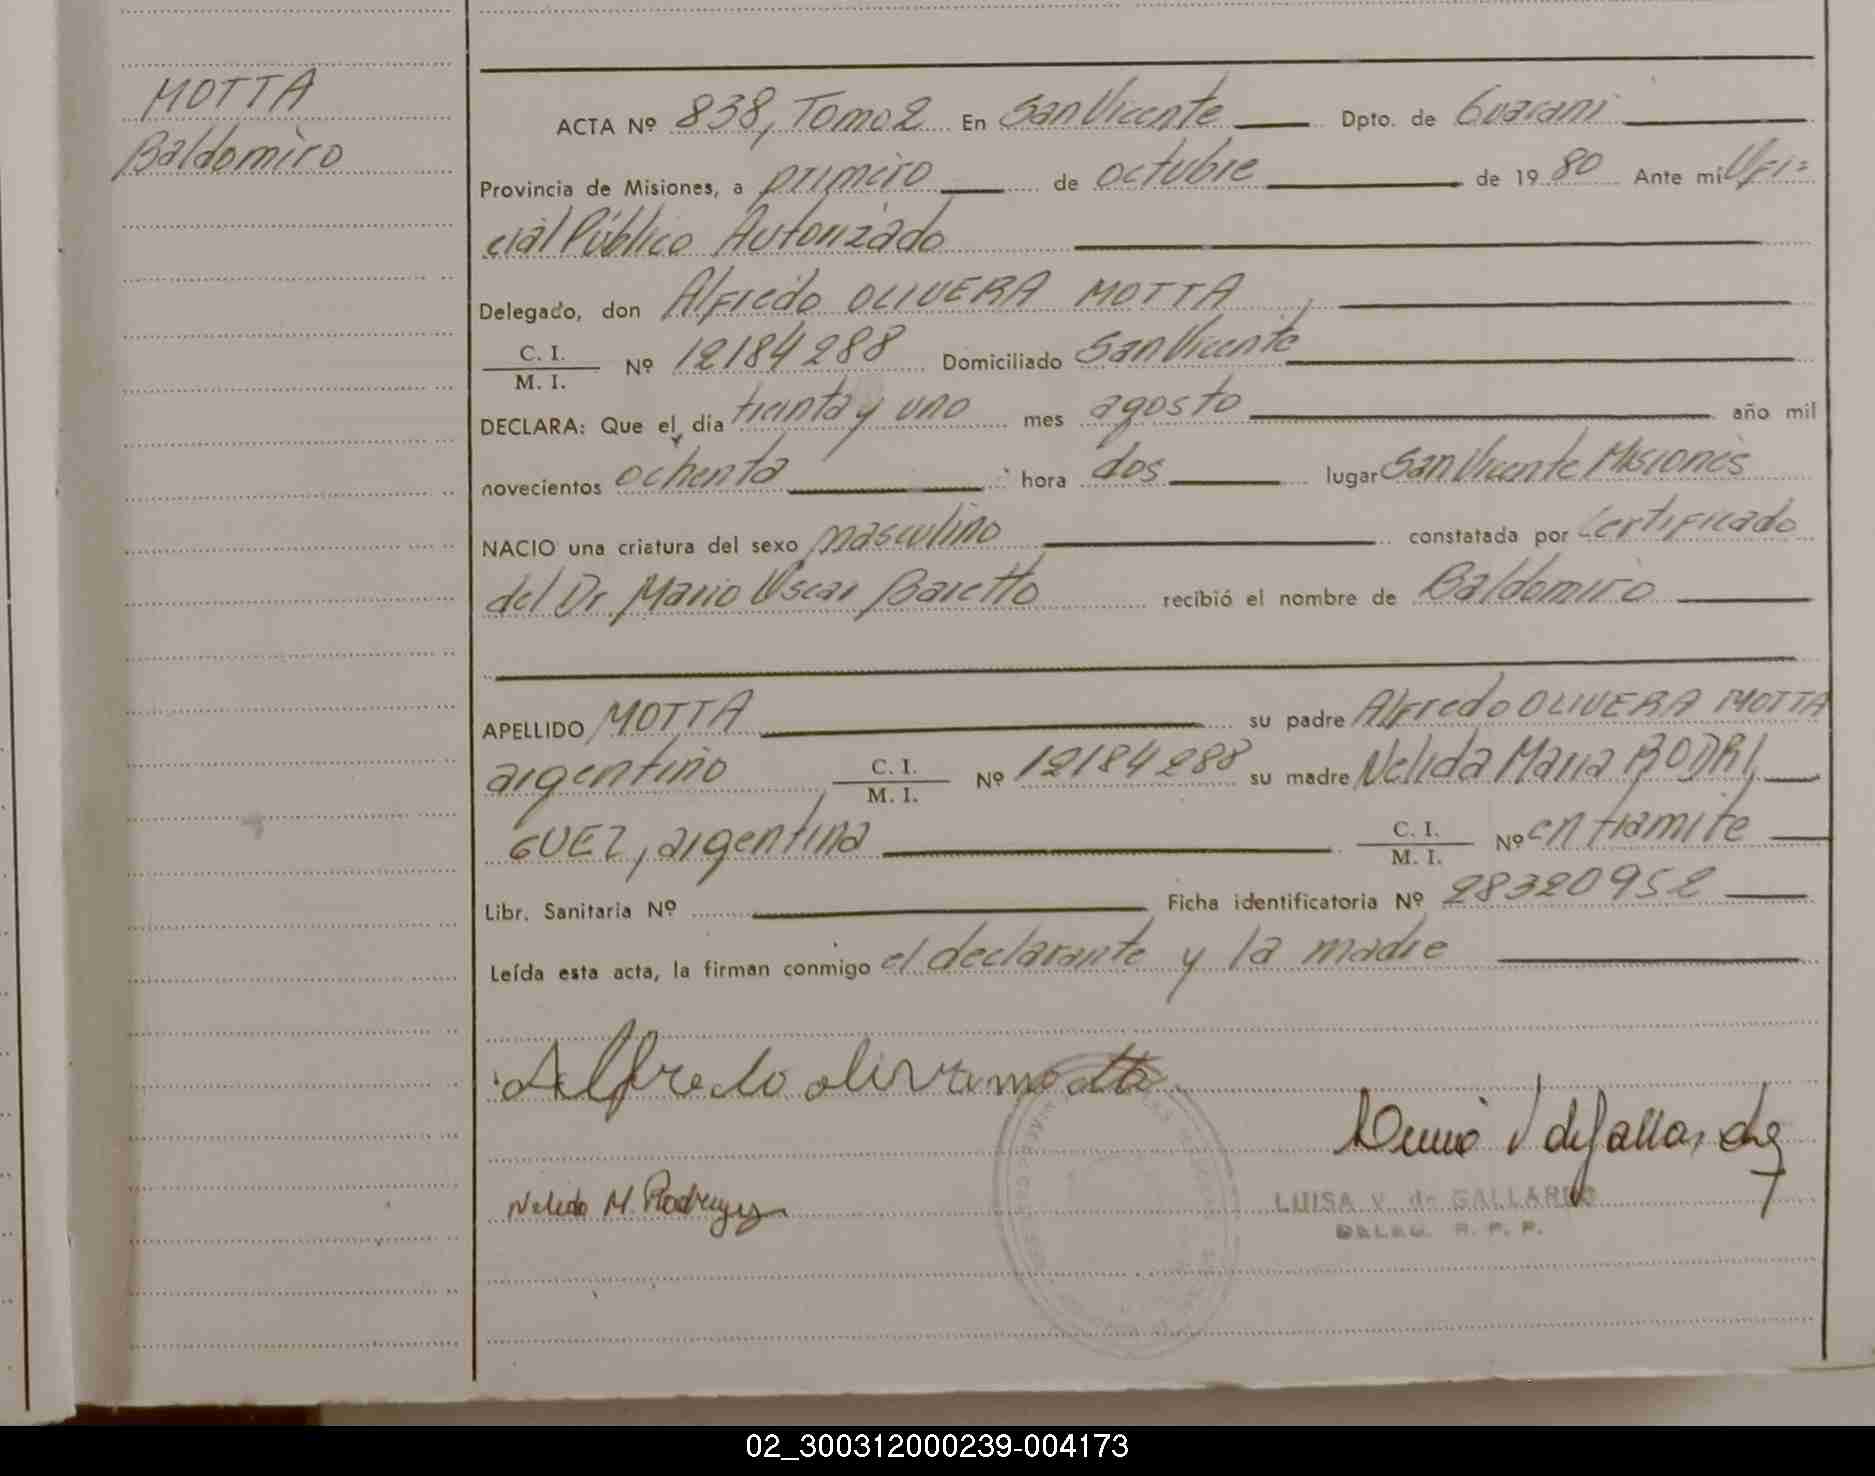 MOTTA
Baldomiro
ACTA Nº 838, Tomo 2 En San Vicente Dpto. de Guarani
Provincia de Misiones, a primiro de octubre de 1980 Ante mi Ofi=
cial Público Autorizado
Delegado, don Alfredo OLIVERA MOTTA,
C. I.
M. I. Nº 12184288 Domiciliado San Vicente
DECLARA: Que el día treinta y uno mes agosto año mil
novecientos ochenta hora dos lugar San Vicente Misiones
NACIO una criatura del sexo masculino constatada por Certificado
del Dr Mario Oscar Baretto recibió el nombre de Baldomiro
APELLIDO MOTTA su padre Alfredo OLIVERA MOTTA
argentino C. I.
M. I. Nº 12184288 su madre Nelida Maria RODRI
GUEZ, argentina C. I.
M. I. Nº en tramite
Libr. Sanitaria Nº Ficha identificatoria Nº 28320952
Leída esta acta, la firman conmigo el declarante y la madre
Alfredo olivera motta
Nelida M. Rodriguez
LUISA V. de GALLARDO
DELEG. R. P. P.
02_300312000239-004173